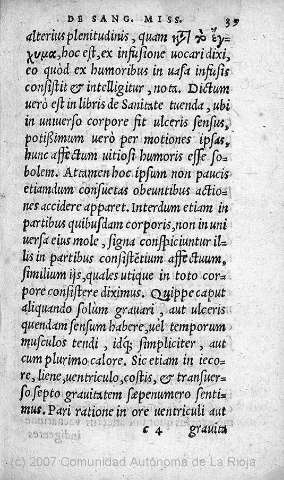 DE SANG. MISS. 39
alterius plenitudinis, quam κατ᾽ ἔγ-
χυμα, hoc est, ex infusione vocari dixi,
eo quòd ex humoribus in uasa infusis
consistit & intelligitur, nota. Dictum
verò est in libris de Sanitate tuenda, ubi
in unuerso corpore fit ulceris sensus,
potißimum verò per motiones ipsas,
hunc affectum uitiosi humoris esse so-
bolem. Attamen hoc ipsum non paucis
etiamdum consuetas obeuntibus actio-
nes accidere apparet. Interdum etiam in
partibus quibusdam corporis, non in uni
uersa eius mole, signa conspiciuntur il-
lis in partibus consistẽtium affectuum,
similium ijs, quales utique in toto cor-
pore consistere diximus. Quippe caput
aliquando solùm grauari, aut ulceris
quendam sensum habere, uel temporum
musculos tendi, idq; simpliciter, aut
cum plurimo calore. Sic etiam in ieco-
re, liene, uentriculo, costis, & transuer-
so septo grauitatem sæpenumero senti-
mus. Pari ratione in ore uentriculi aut
c 4 grauita
(c) 2007 Comunidad Autónoma de La Rioja